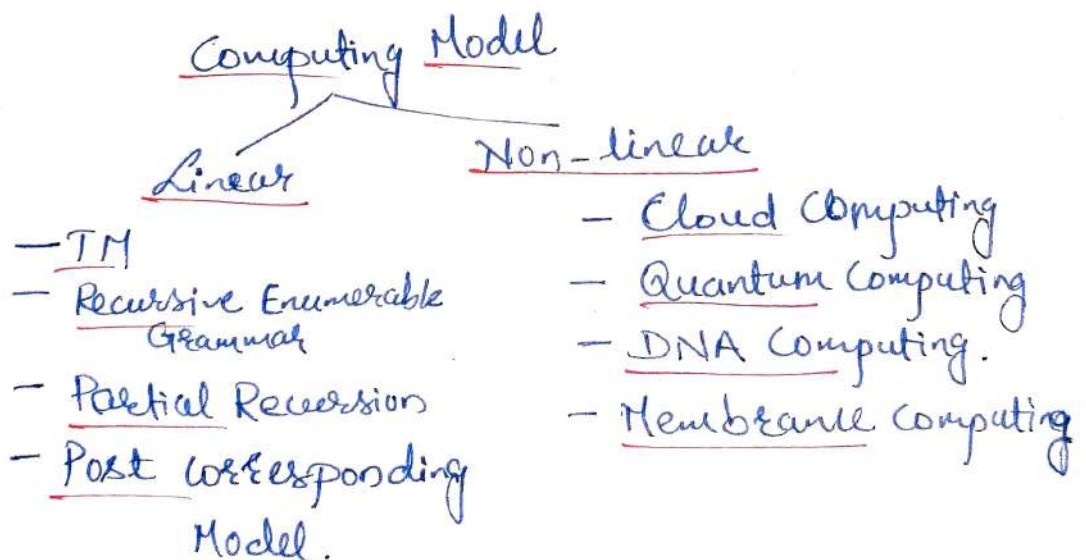 Computing Model
Linear
- TM
- Recursive Enumerable
Grammar
- Partial Recursion
- Post corresponding
Model.
Non-linear
- Cloud Computing
- Quantum Computing
- DNA Computing.
- Membrane Computing